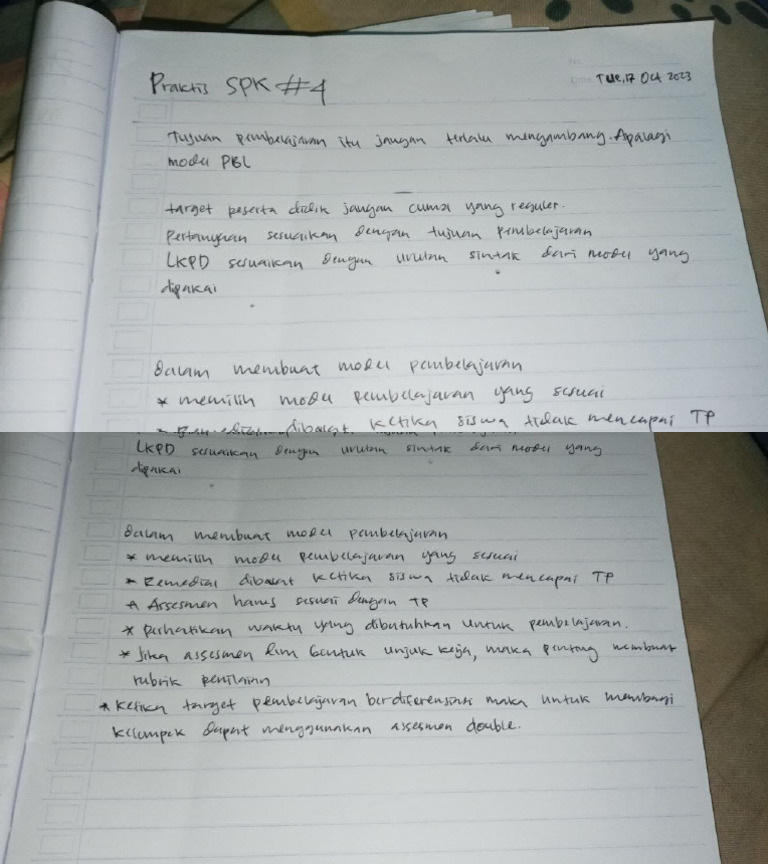 No.
Date. Tue, 17 Oct 2023
Praktis SPK #4
Tujuan pembelajaran itu jangan terlalu mengambang. Apalagi
model PBL
target peserta didik jangan cuma yang reguler.
Pertanyaan sesuaikan dengan tujuan pembelajaran
LKPD sesuaikan dengan urutan sintak dari model yang
dipakai
dalam membuat model pembelajaran
* memilih model pembelajaran yang sesuai
* Remedial dibuat ketika siswa tidak mencapai TP
LKPD sesuaikan dengan urutan sintak dari model yang
dipakai
dalam membuat model pembelajaran
* memilih model pembelajaran yang sesuai
* Remedial dibuat ketika siswa tidak mencapai TP
* Assesmen harus sesuai dengan TP
* Perhatikan waktu yang dibutuhkan untuk pembelajaran.
* Jika assesmen bentuk unjuk kerja, maka penting membuat
rubrik penilaian
* Ketika target pembelajaran berdiferensiasi maka untuk membagi
kelompok dapat menggunakan assesmen double.